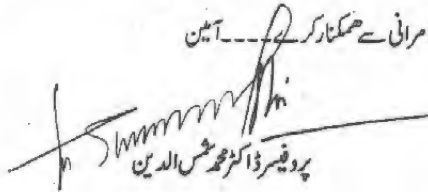 مرانی سے ھمکنار کر ۔۔۔۔ آمین
پروفیسر ڈاکٹر محمد شمس الدین